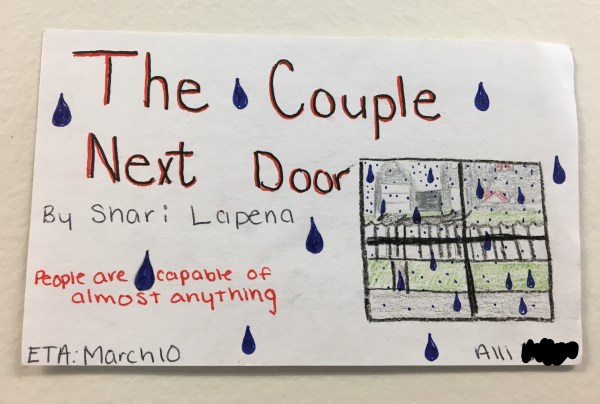 The Couple
Next Door
By Shari Lapena
People are capable of
almost anything
ETA: March 10
Alli